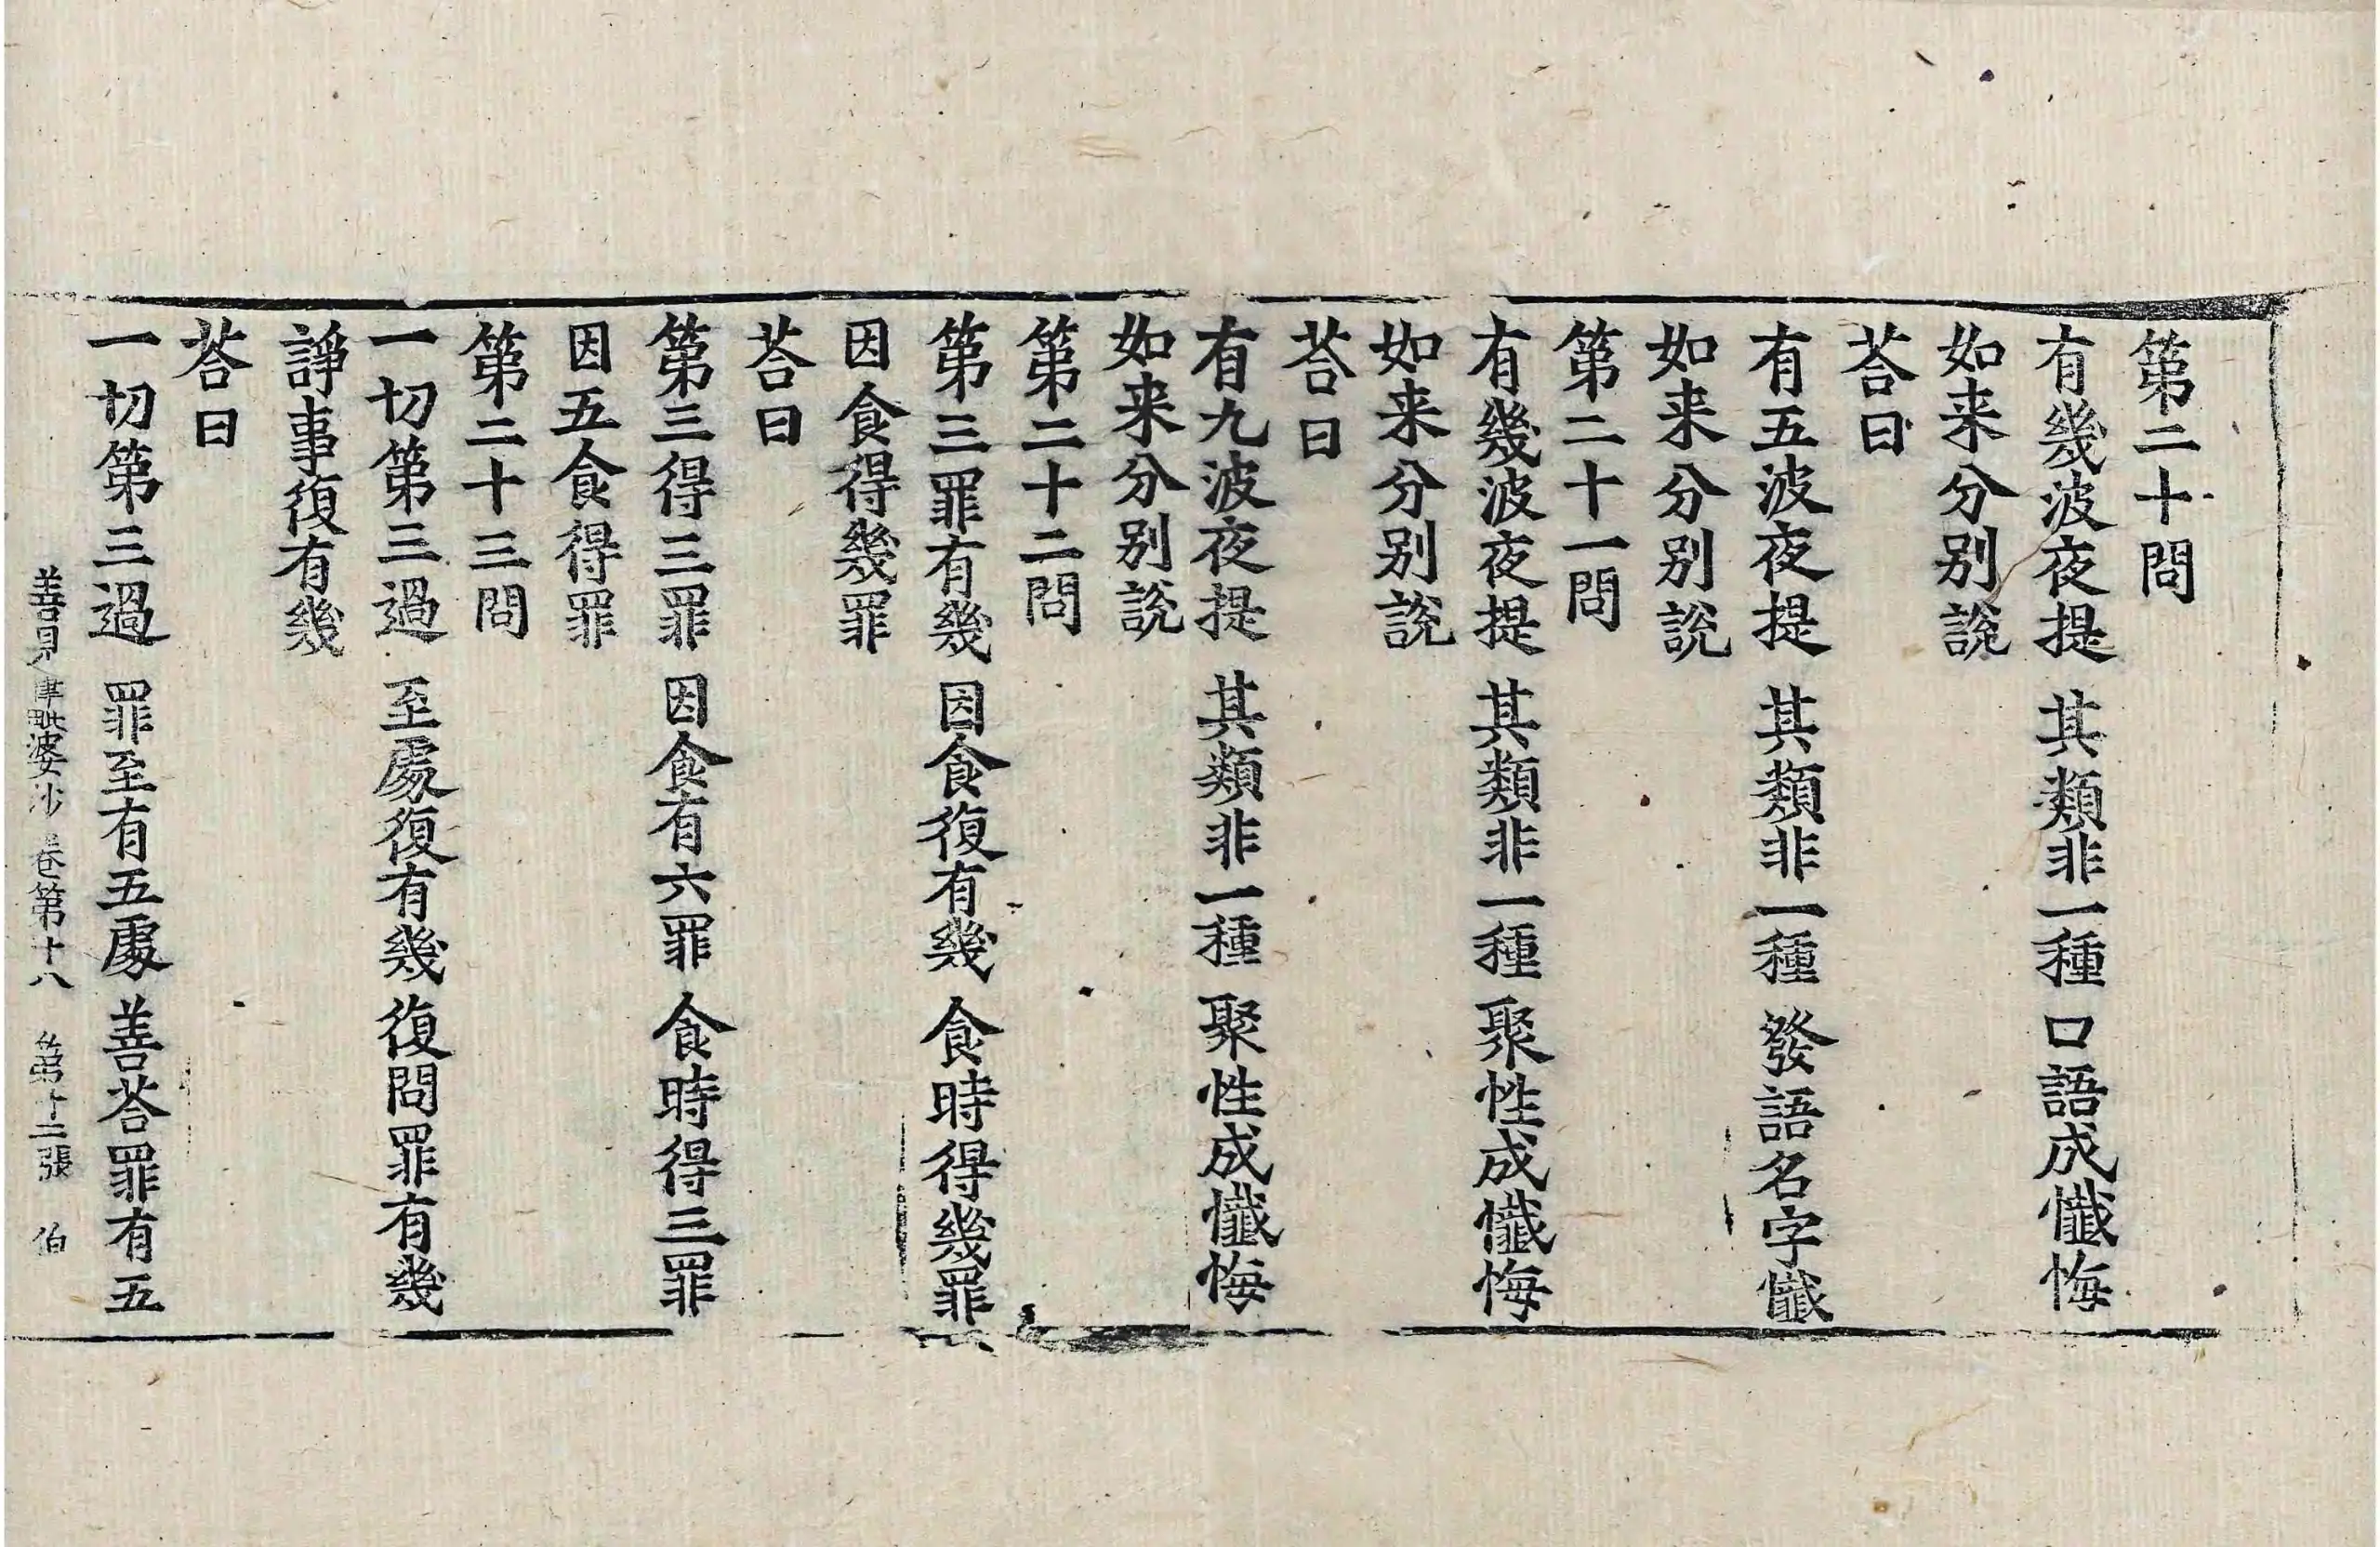 第二十問
有幾波夜提 其類非一種 口語成懺悔
如来分别說
荅曰
有五波夜提 其類非一種 發語名字懺
如来分别說
第二十一問
有幾波夜提 其類非一種 聚性成懺悔
如来分别說
荅曰
有九波夜提 其類非一種 聚性成懺悔
如来分别說
第二十二問
第三罪有幾 因食復有幾 食時得幾罪
因食得幾罪
荅曰
第三得三罪 因食有六罪 食時得三罪
因五食得罪
第二十三問
一切第三過 至處復有幾 復問罪有幾
諍事復有幾
荅曰
一切第三過 罪至有五處 善荅罪有五
善見律毗婆沙卷第十八 第十二張 伯